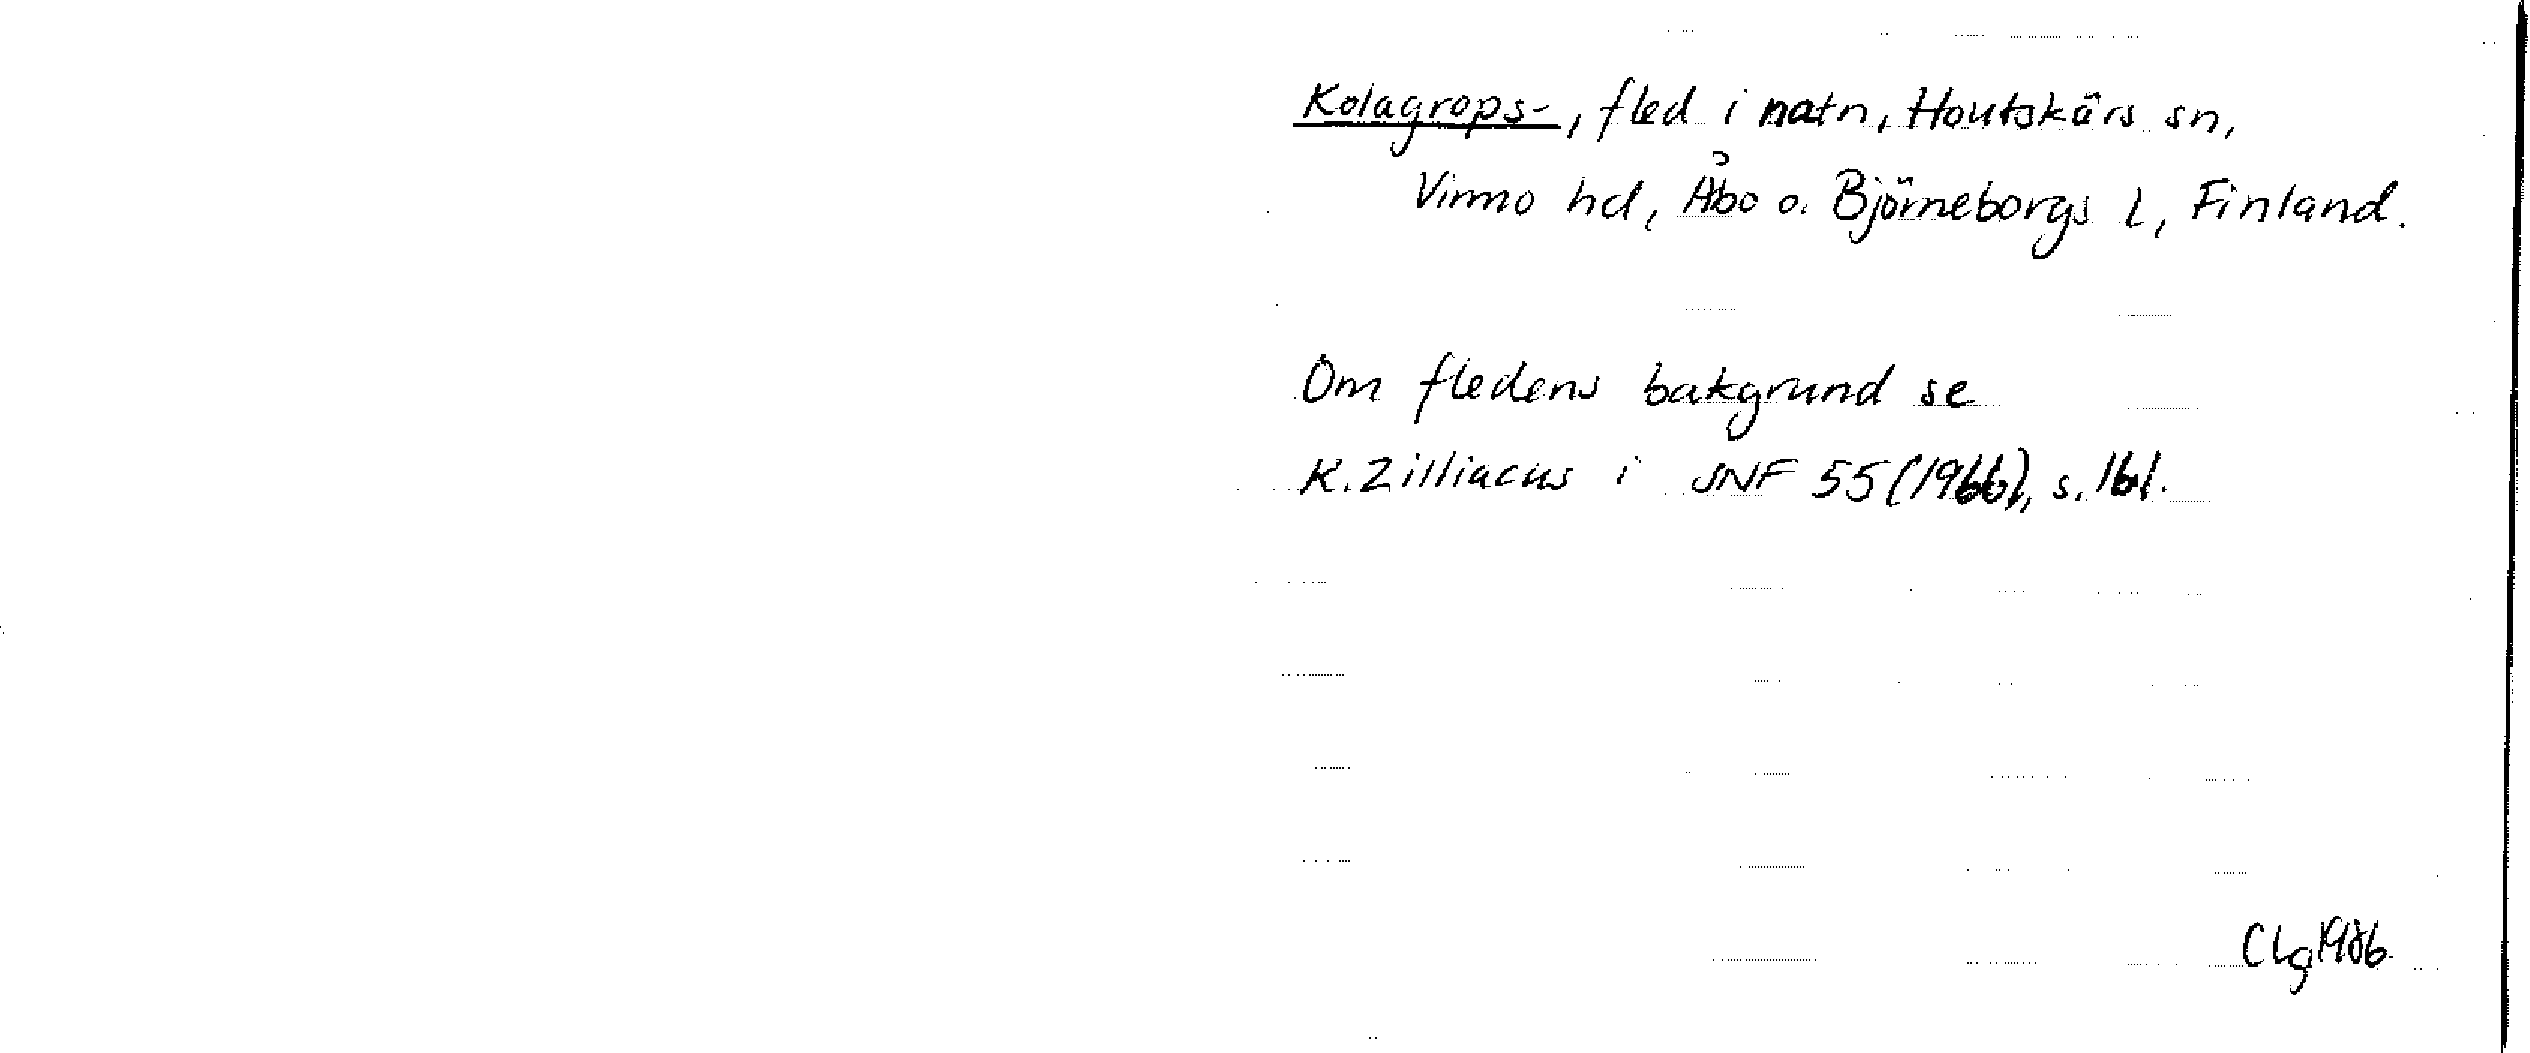 Kolagrops-, fled i natn, Houtskärs sn,
Virmo hd, Åbo o. Björneborgs l, Finland.
Om fledens bakgrund se
K. Zilliacus i SNF 55 (1966), s. 161.
CLg 1986